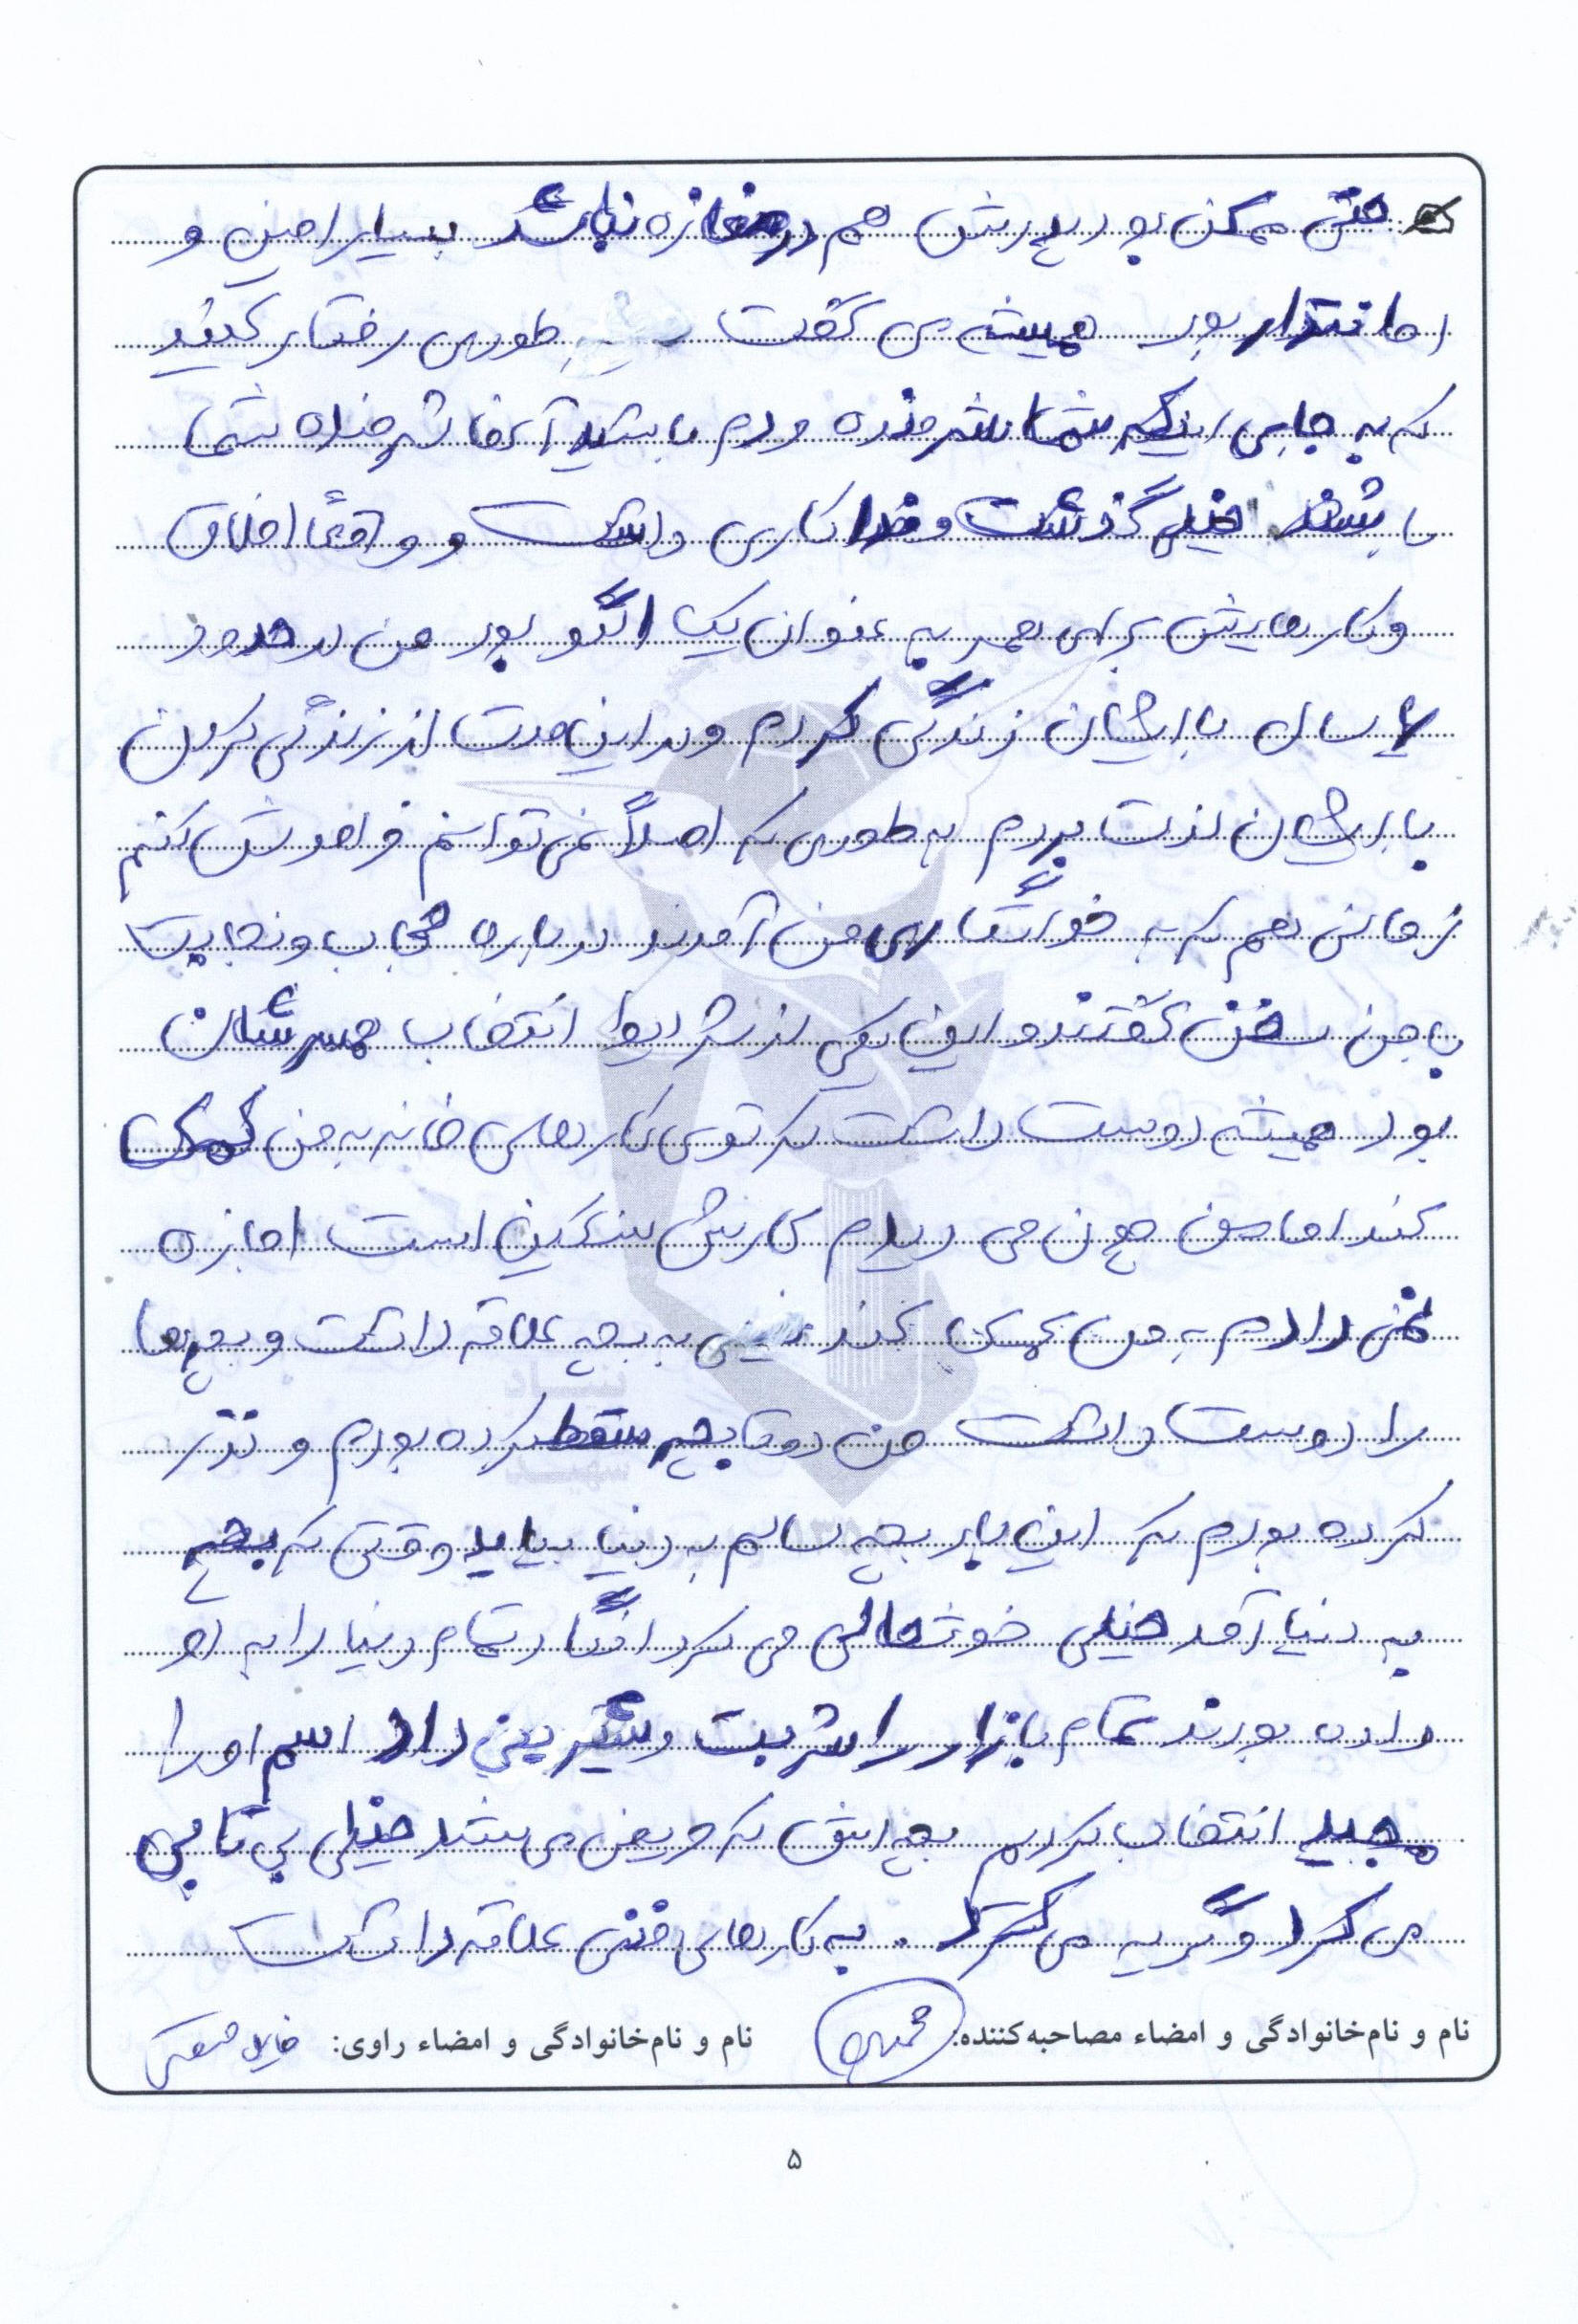 حتی ممکن بود پدرش هم در مغازه نباشد بسیار امین و
امانتدار بود همیشه می گفت طوری رفتار کنید
که به جایی اینکه شما شرمنده مردم باشید آنها شرمنده شما
باشند خیلی گذشت و فداکاری داشت و واقعاً اخلاق
و کارهایش برای همه به عنوان یک الگو بود من در حدود
سال با ایشان زندگی کردم و در این مدت از زندگی کردن
با ایشان لذت بردم به طوری که اصلاً نمی توانم فراموش کنم
زمانی هم که به خواستگاری من آمدند درباره حجاب و نجابت
با من سخن گفتند و این یکی از شرایط انتخاب همسرشان
بود همیشه دوست داشت که توی کارهای خانه به من کمک
کند اما من چون می دیدم کارش سنگین است اجازه
نمی دادم به من کمک کند خیلی به بچه علاقه داشت و بچه ها
را دوست داشت من دو تا بچه سقط کرده بودم و نذر
کرده بودم که این بار بچه سالم به دنیا بیاید وقتی که بچه
به دنیا آمد خیلی خوشحالی می کرد انگار تمام دنیا را به او
داده بودند تمام بازار را شربت و شیرینی داد اسم او را
مجید انتخاب کردیم بچه اش که مریض می شد خیلی بی تابی
می کرد و گریه می کرد . به کارهای فنی علاقه داشت
نام و نام‌خانوادگی و امضاء مصاحبه‌کننده: نام و نام‌خانوادگی و امضاء راوی:
۵